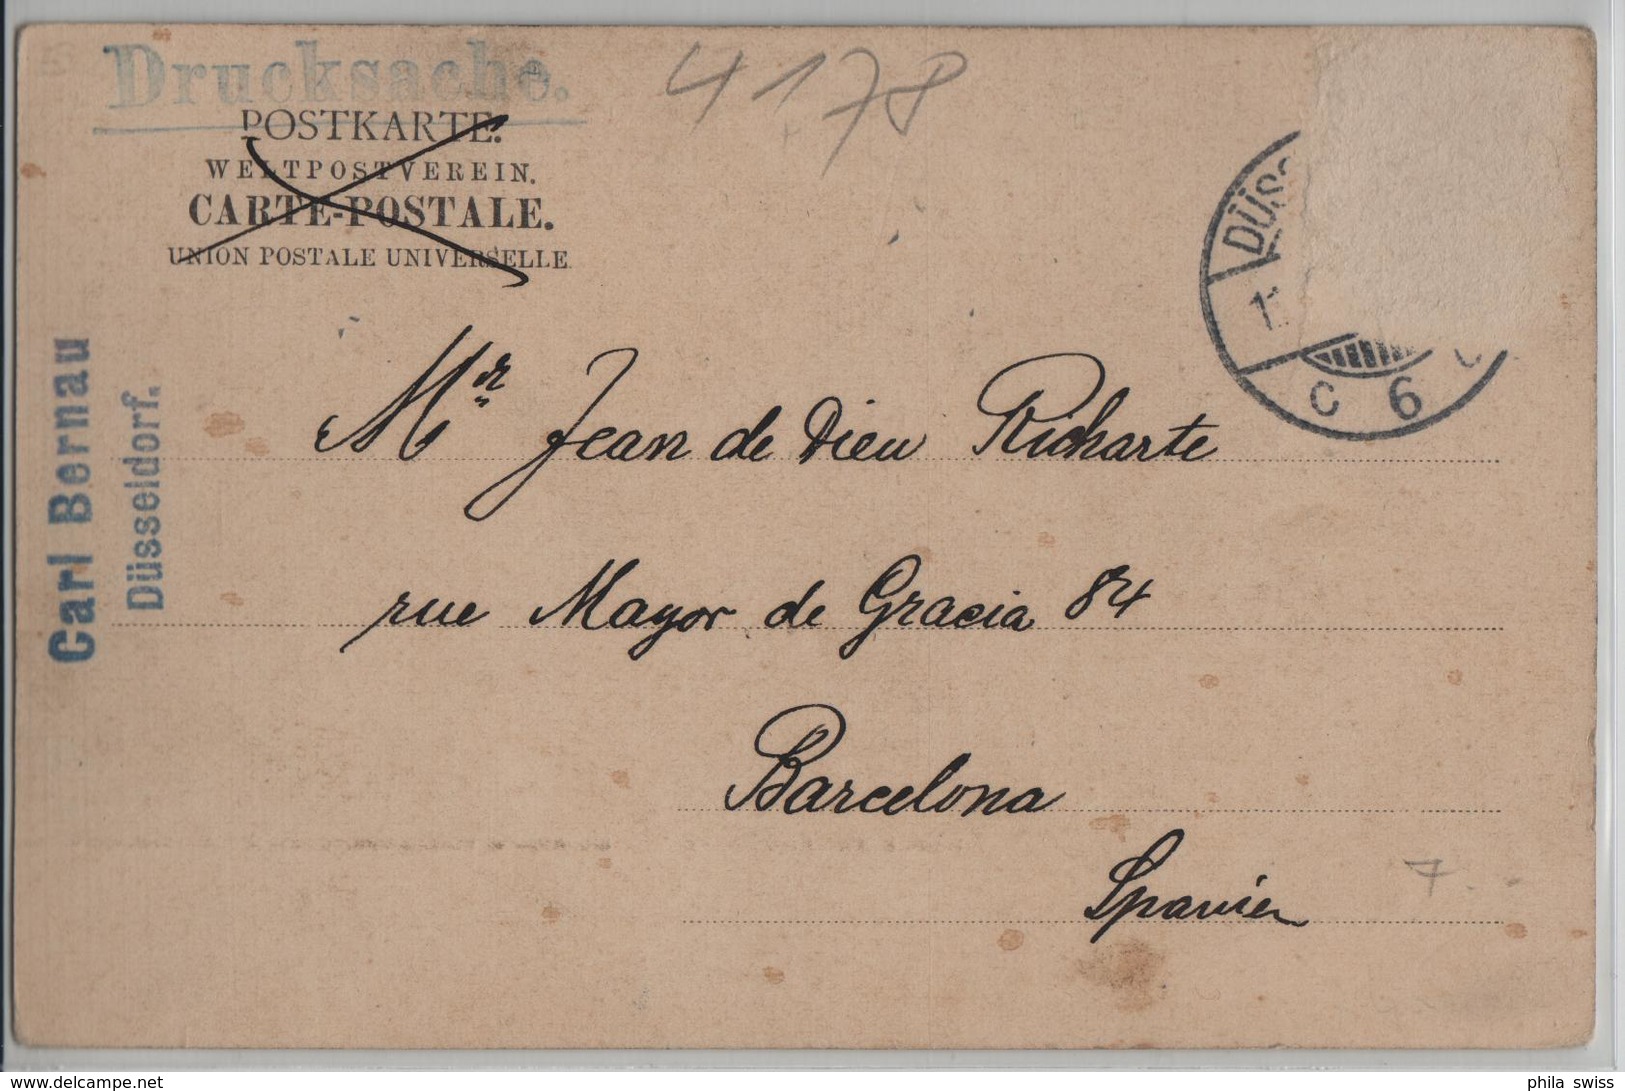 Drucksache.
POSTKARTE.
WELTPOSTVEREIN.
CARTE-POSTALE.
UNION POSTALE UNIVERSELLE
4178
DÜSS
1
C 6
Carl Bernau
Düsseldorf.
Mr Jean de Dieu Richarte
rue Mayor de Gracia 84
Barcelona
Spanien
7
www.delcampe.net
phila swiss